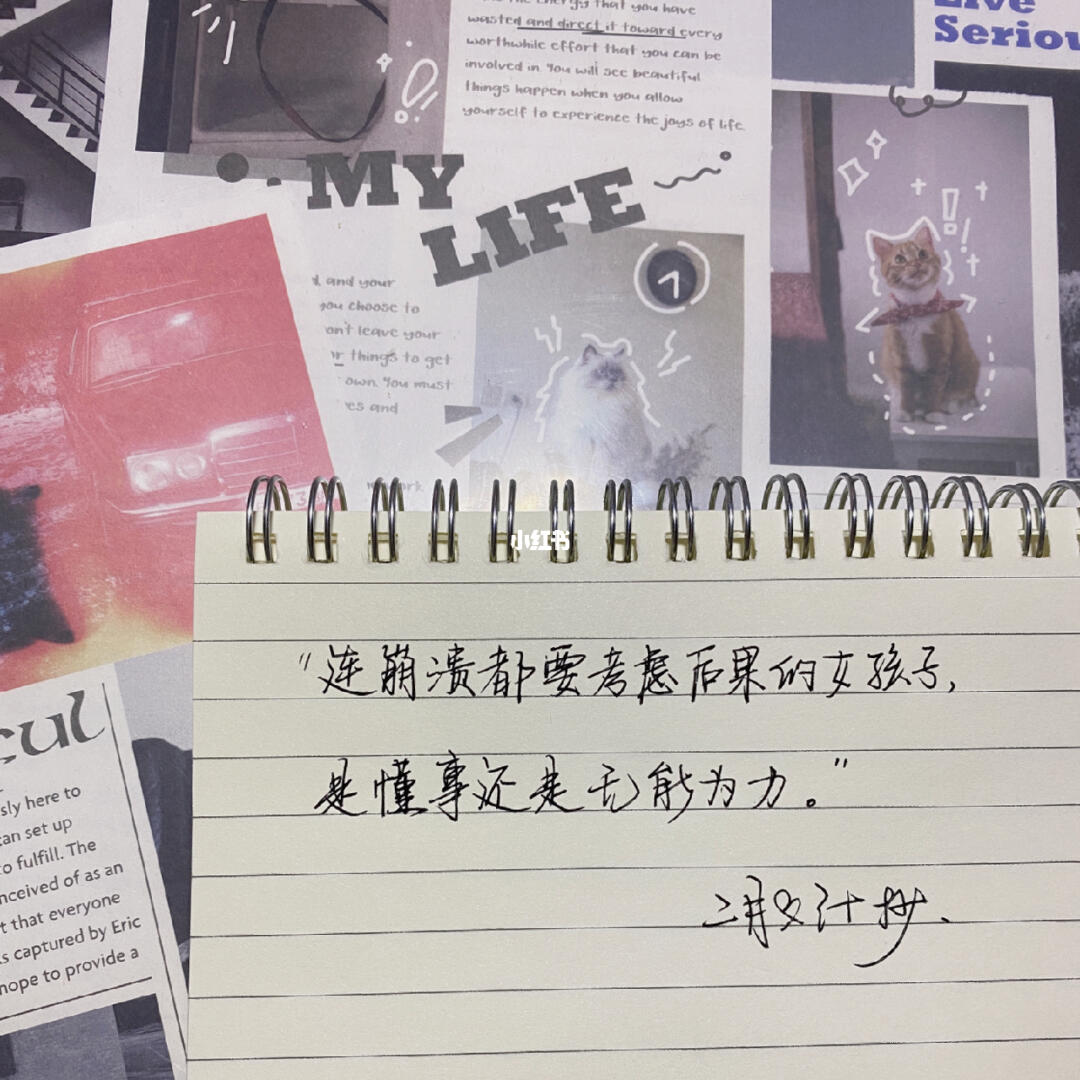 the energy that you have
wasted and direct it toward every
worthwhile effort that you can be
involved in. You will see beautiful
things happen when you allow
yourself to experience the joys of life.
Live
Seriou
MY
LIFE
and your
you choose to
on't leave your
things to get
own. You must
es and
work.
小红书
“连崩溃都要考虑后果的女孩子，
是懂事还是无能为力。”
cul
sly here to
can set up
to fulfill. The
nceived of as an
t that everyone
s captured by Eric
hope to provide a